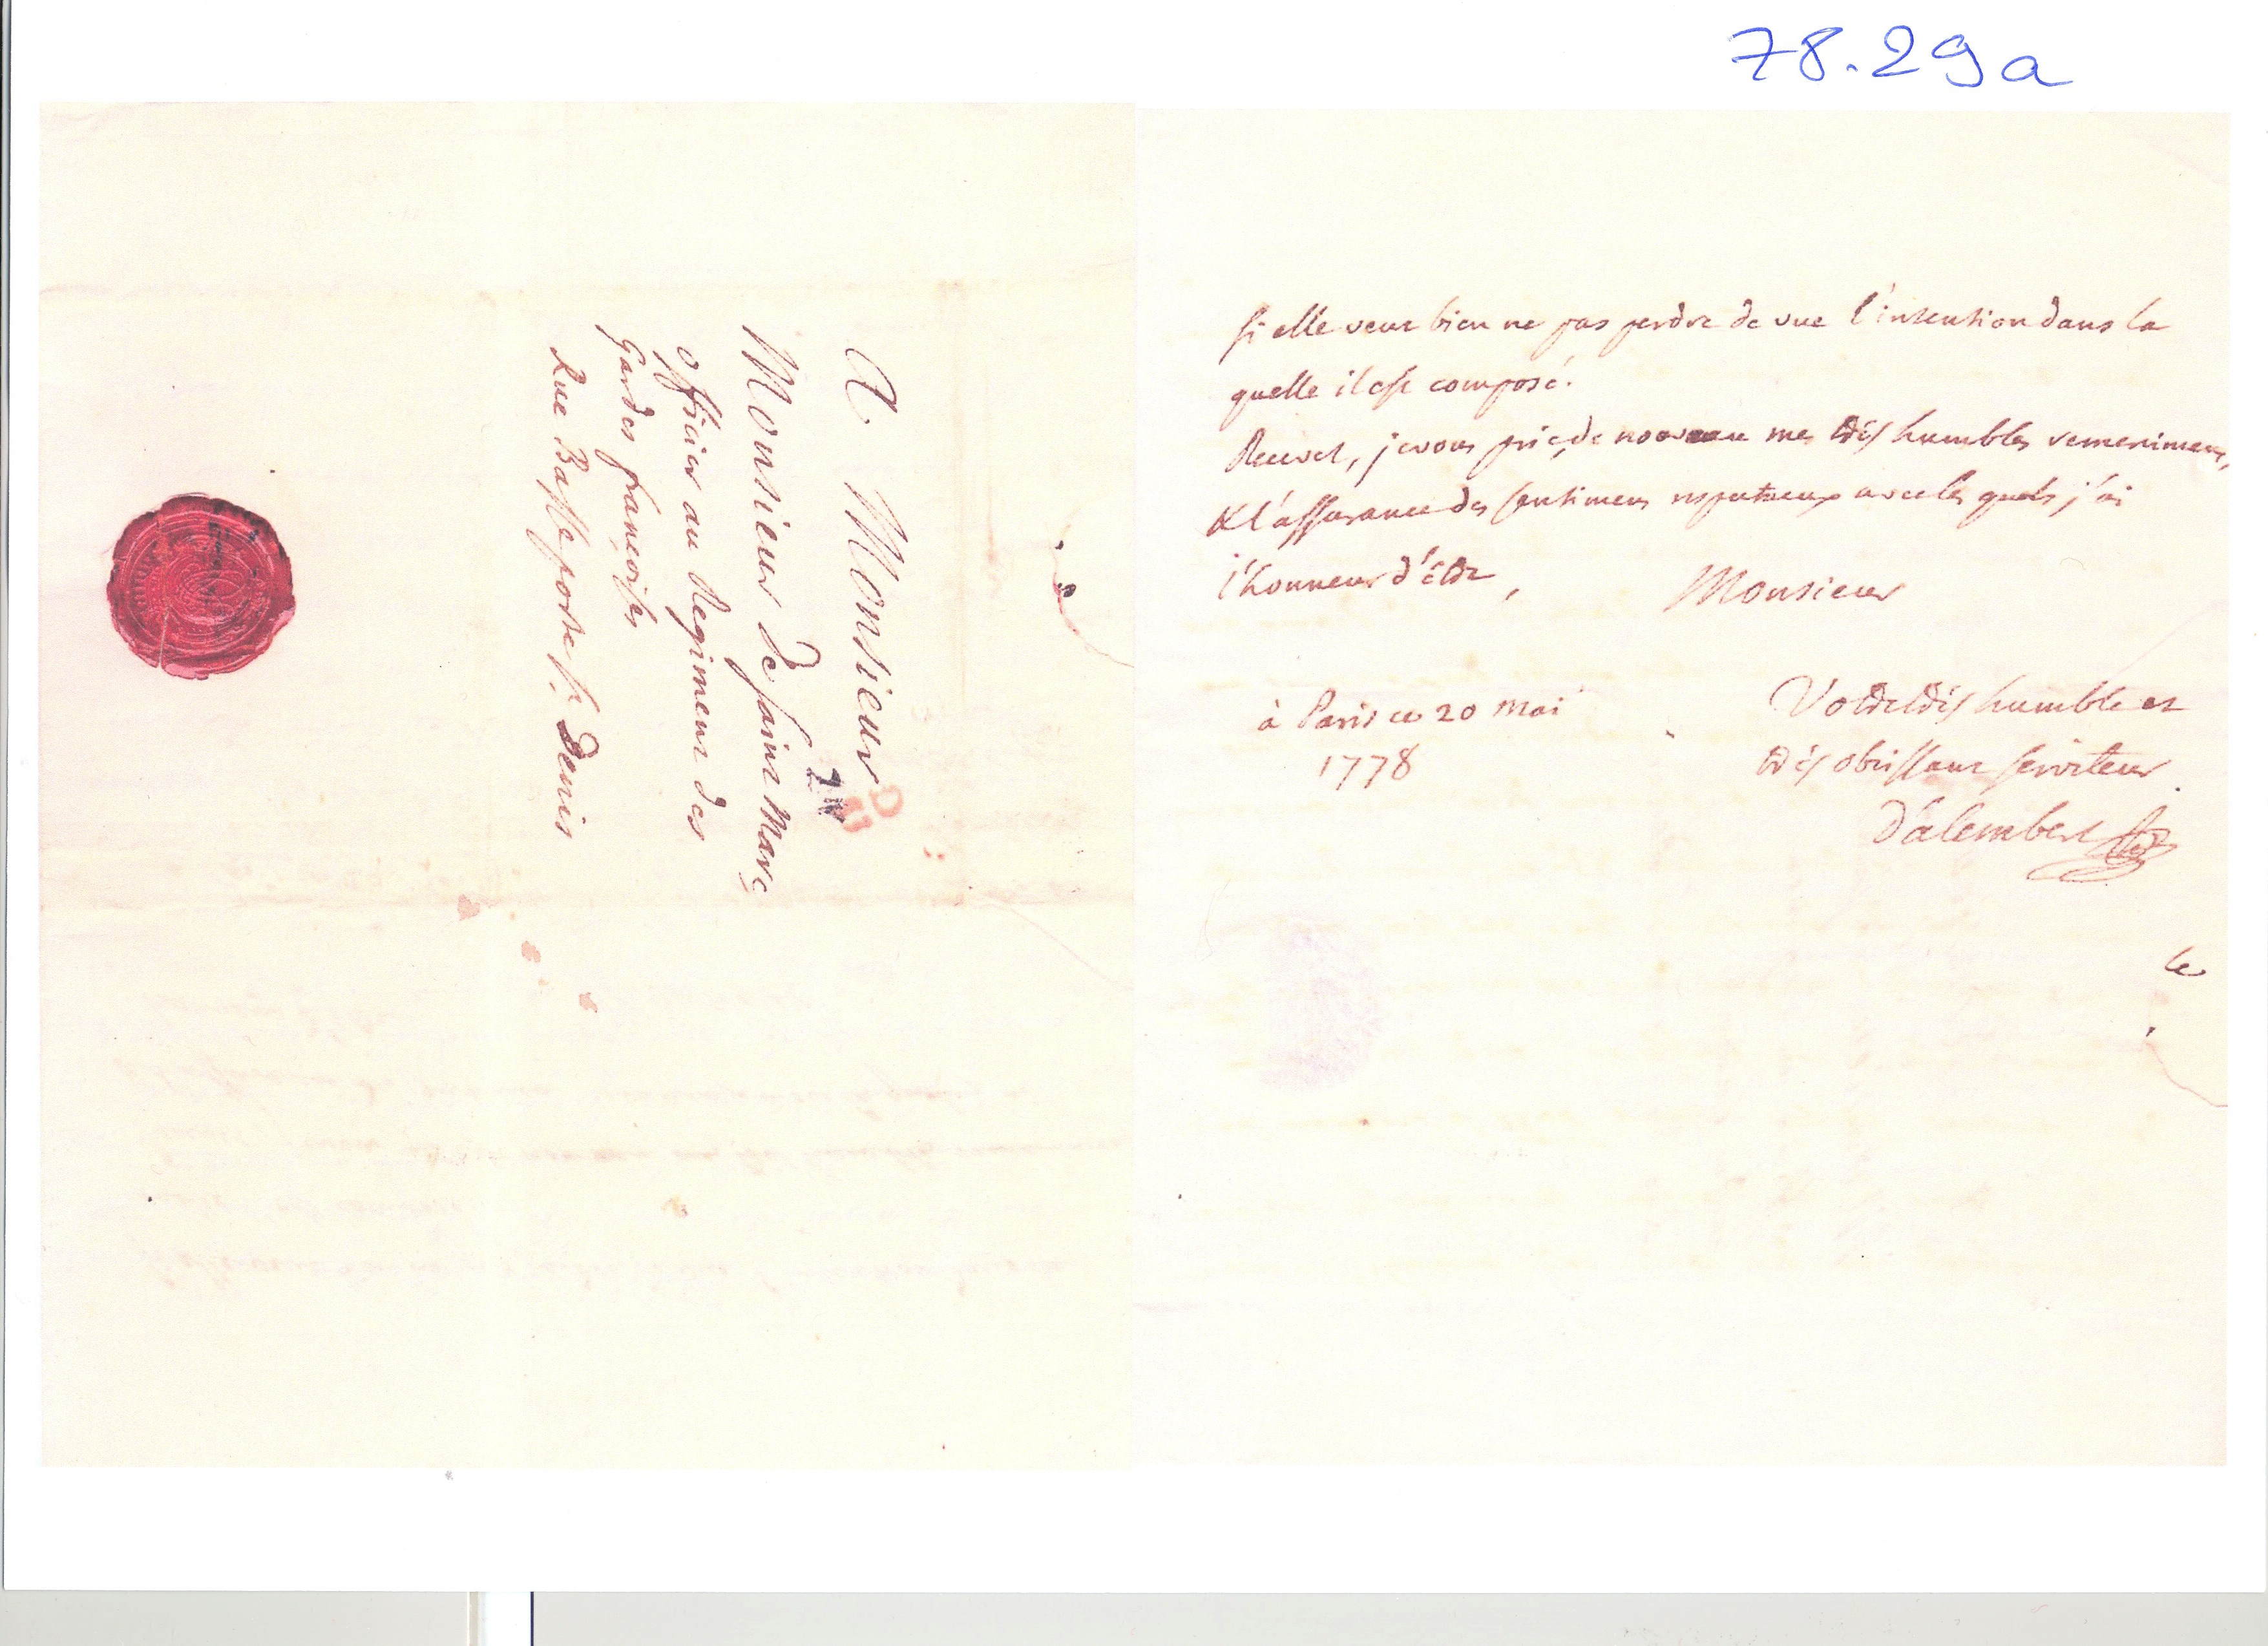 78.29a
A Monsieur
Monsieur de saint Marc
officier au Regiment des
Gardes françoises
Rue Basse porte St. Denis
si elle veut bien ne pas perdre de vue l'intention dans la
quelle il est composé.
Recevez, je vous prie, de nouveau mes très humbles remerimens,
& l'assurance des sentimens respectueux avec les quels j'ai
l'honneur d'être,
Monsieur
à Paris ce 20 mai
1778
Votre très humble et
très obéissant serviteur
D'alembert